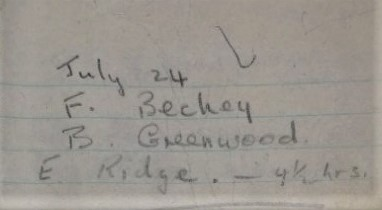 July 24
F. Beckey
B. Greenwood.
E Ridge. - 4½ hrs.